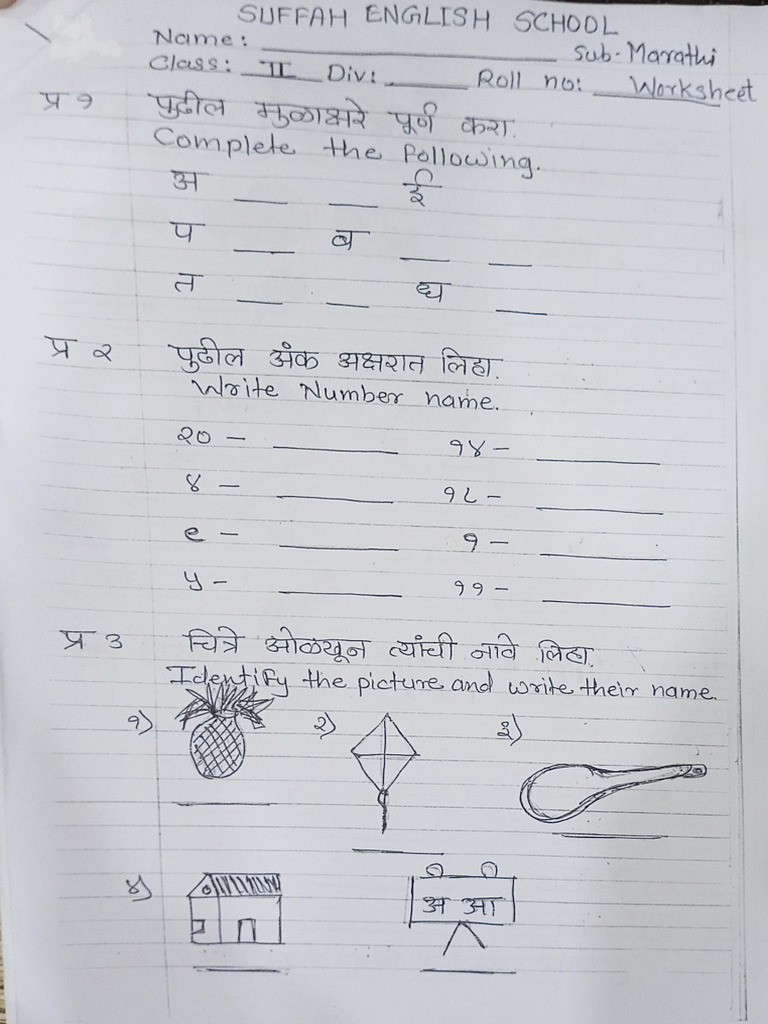 SUFFAH ENGLISH SCHOOL
Name: ____________ Sub-Marathi
Class: II Div: ____ Roll no: ____ Worksheet
प्र १ पुढील मुळाक्षरे पूर्ण करा.
Complete the following.
अ __ __ ई
प __ ब __ __
त __ __ ध __
प्र २ पुढील अंक अक्षरात लिहा.
Write Number name.
२० - ______ १४ - ______
४ - ______ १८ - ______
९ - ______ १ - ______
५ - ______ ११ - ______
प्र ३ चित्रे ओळखून त्यांची नावे लिहा.
Identify the picture and write their name.
१) २) ३)
४)
अ आ